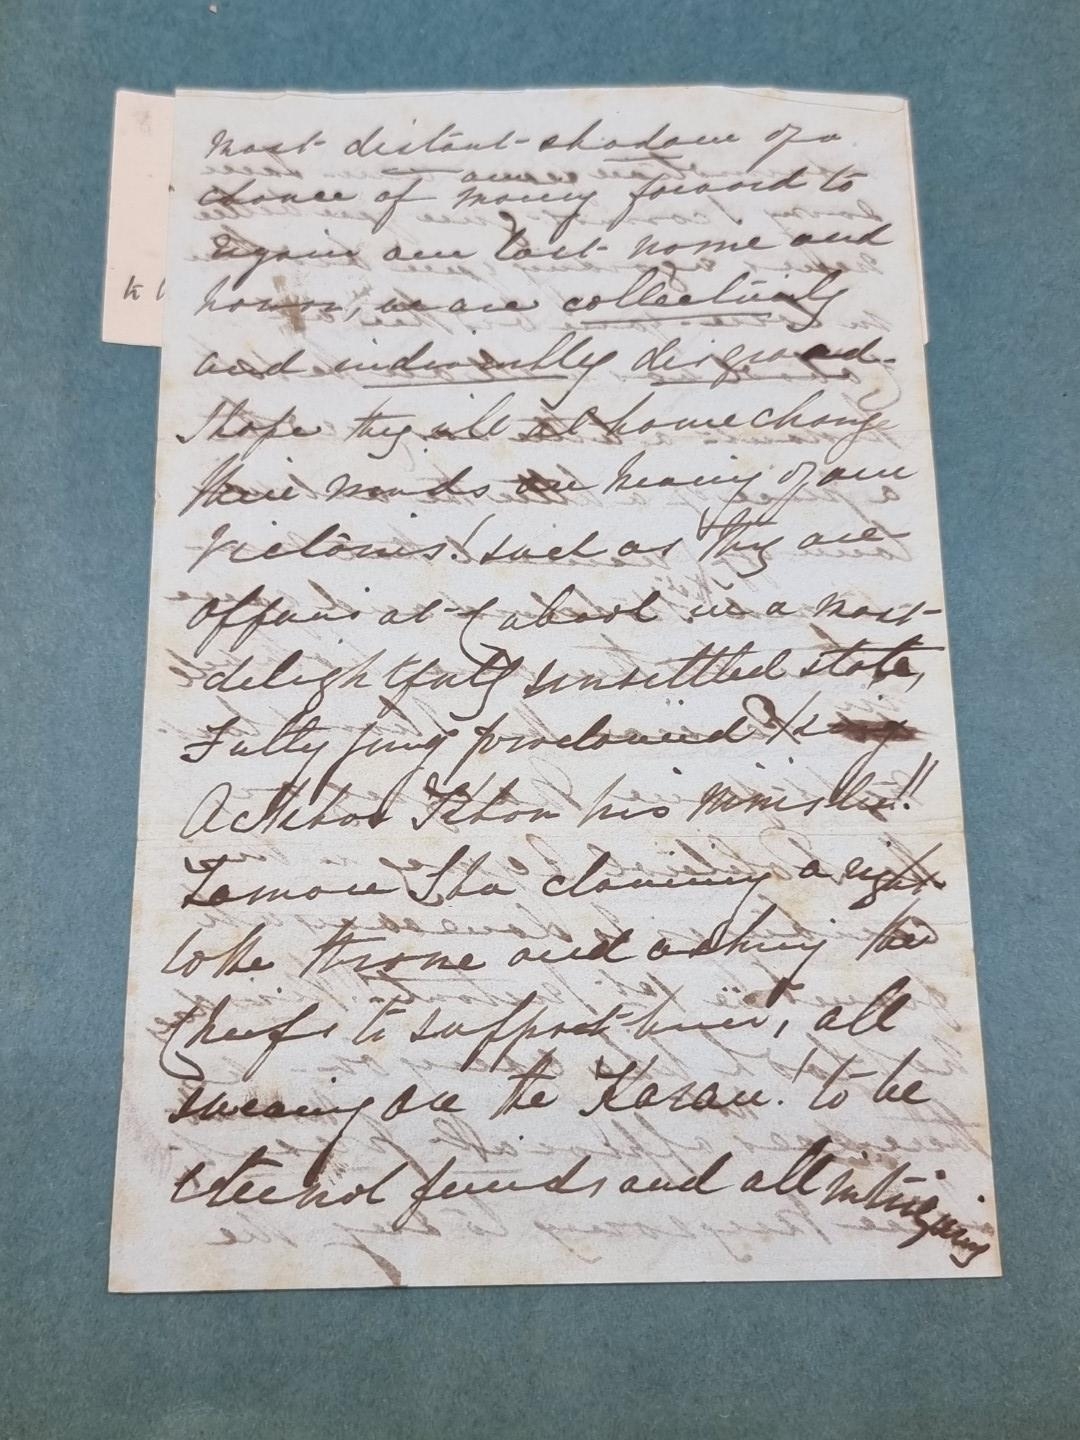 most distant shadow of a
chance of our moving forward to
regain our lost name and
honor, we are collectively
and individually disgraced.
I hope they will at home change
their minds on hearing of our
Victories! such as they are
Affairs at Cabool in a most
delightfully unsettled state,
Futty Jung proclaimed King
Ackbar Khan his Minister!!
Tamour Sha claiming a right
to the throne and asking the
Chiefs to support him, all
swearing on the Koran! to be
eternal friends and all intriguing